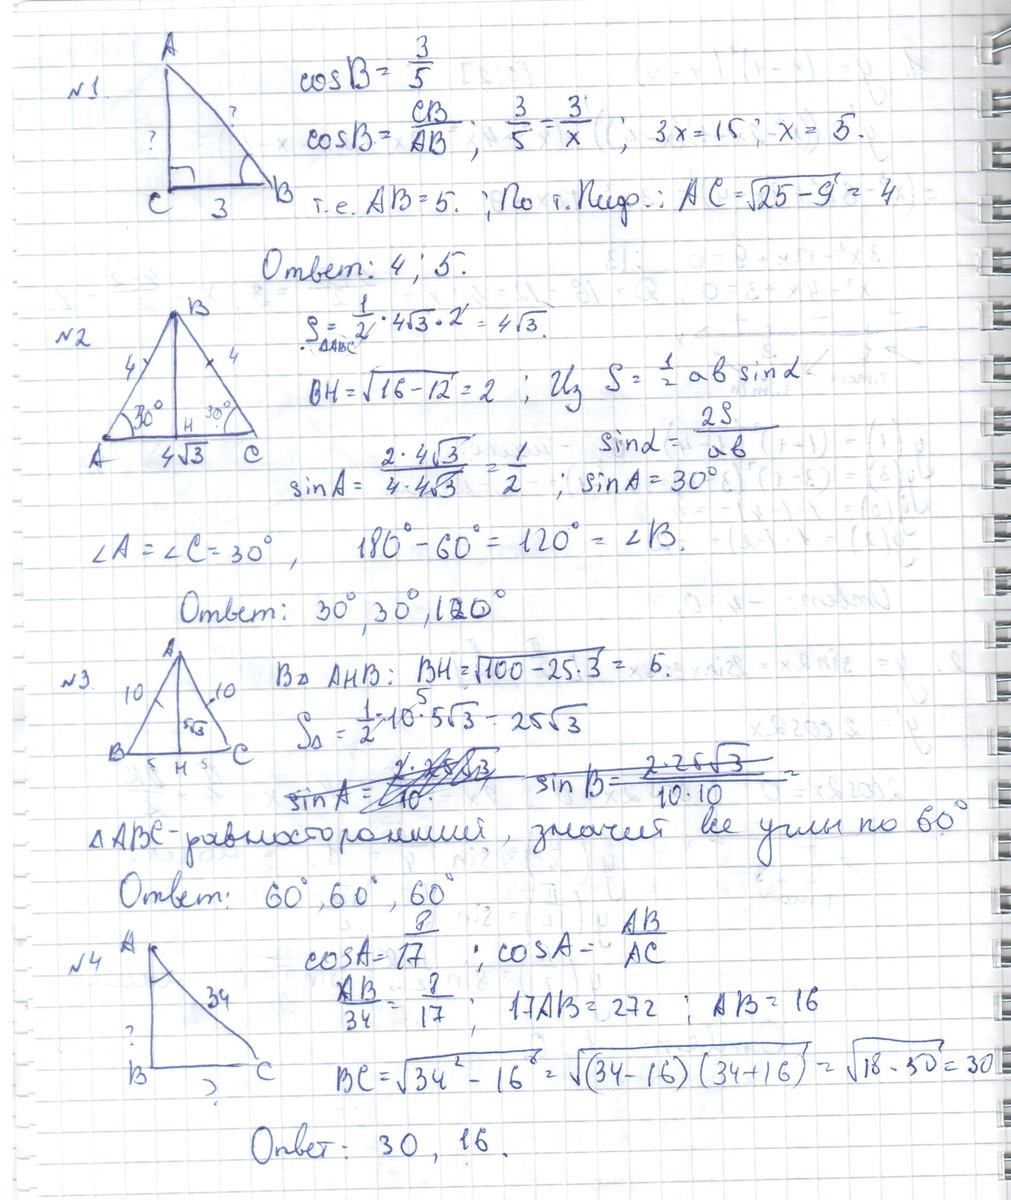 №1.
A
?
?
C
3
B
cosB = 3/5
cosB = CB/AB ; 3/5 = 3/x ; 3x = 15 ; x = 5.
т.е. AB = 5. ; По т. Пиф.: AC = √25 − 9 = 4
Ответ: 4 ; 5.
№2
B
4
4
30°
30°
H
A
4√3
C
S△ABC = 1/2 · 4√3 · 2 = 4√3.
BH = √16 − 12 = 2 ; Из S = 1/2 ab sinα
sinα = 2S/ab
sinA = 2 · 4√3/4 · 4√3 = 1/2 ; sinA = 30°
∠A = ∠C = 30° , 180° − 60° = 120° = ∠B.
Ответ: 30°, 30°, 120°
№3
A
10
10
5√3
B
5
H
5
C
В △ AHB: BH = √100 − 25 · 3 = 5.
S△ = 1/2 · 10 5 · 5√3 = 25√3
sinA = 2 · 25√3/10 · sinB = 2·25√3/10·10 =
△ABC - равносторонний, значит все углы по 60°
Ответ: 60°, 60°, 60°
№4
A
34
?
B
?
C
cosA = 8/17 ; cosA = AB/AC
AB/34 = 8/17 ; 17AB = 272 ; AB = 16
BC = √34² − 16² = √(34−16)(34+16) = √18 · 50 = 30
Ответ: 30, 16.